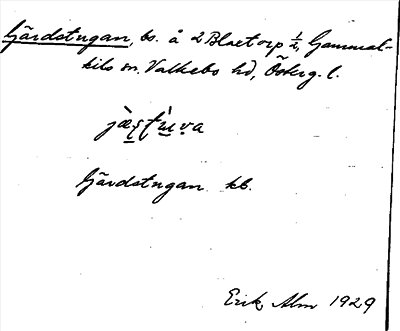 Gärdstugan, bs. å 2 Blaetorp ½, Gammal-
kils sn. Valkebo hd, Österg. l.
Gärdstugan kb.
Erik Alm 1929